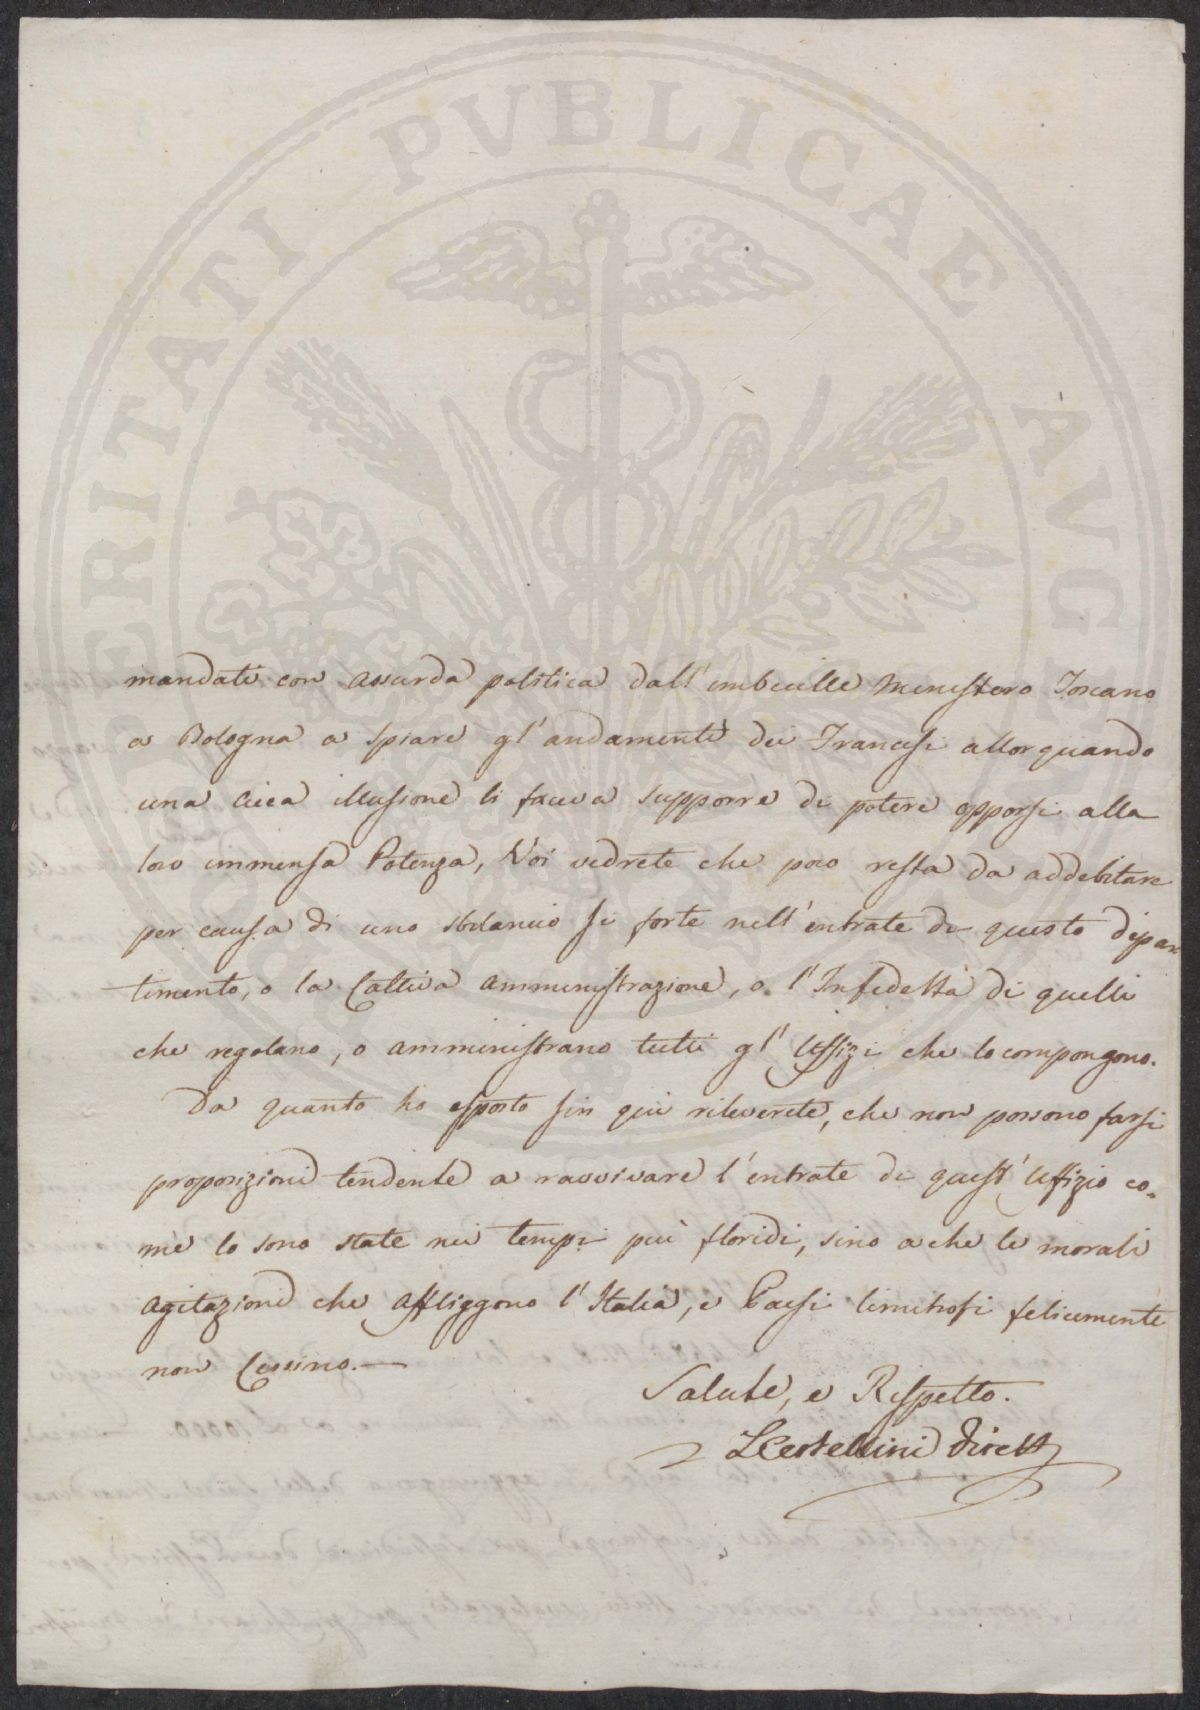 PROSPERITATI PVBLICAE AVGENDAE
mandati con assurda politica dall'imbecille Ministero Toscano
a Bologna a spiare gl'andamenti dei Francesi allorquando
una cieca illusione li faceva supporre di potere opporsi alla
loro immensa Potenza, Voi vedrete che poco resta da addebitare
per causa di uno sbilancio si forte nell'entrate di questo dipar-
timento, o la Cattiva amministrazione, o l'Infedeltà di quelli
che regolano, o amministrano tutti gl'Uffizi che lo compongono.
Da quanto ho esposto sin qui rileverete, che non possono farsi
proposizioni tendente a ravvivare l'entrate di quest'Uffizio co=
me lo sono state nei tempi più floridi, sino a che le morali
agitazioni che affliggono l'Italia, e Paesi limitrofi felicemente
non Cessino.—
Salute, e Rispetto.
Dirett